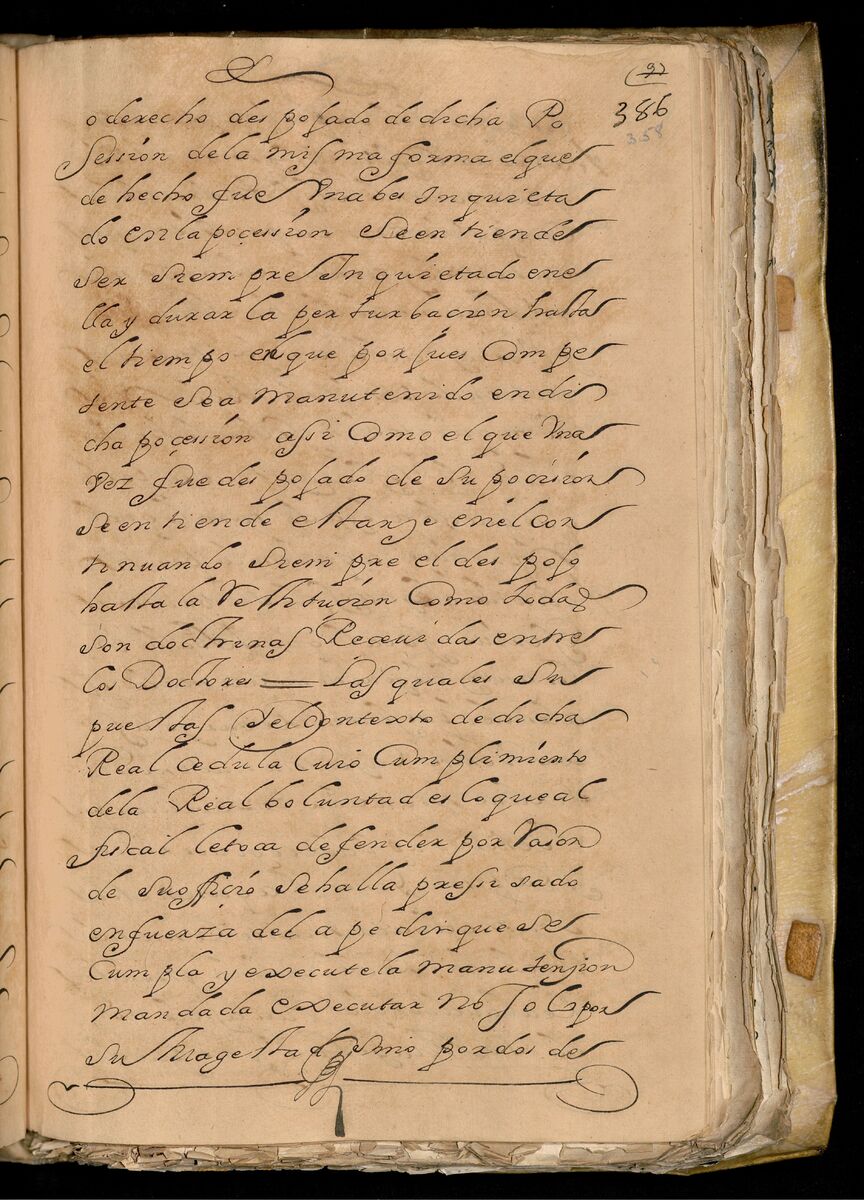 (9)
386
358
o derecho des posado dedicha Po
session dela misma forma elque
de hecho fue Vna bes Inquieta
do enla pocession seentiende
ser siempre Inquietado ene
lla y durar la perturbacion hasta
el tiempo enque por jues Compe
tente sea manutenido endi
cha pocession assi Como el que Vna
vez fue des posado de su pocision
seentiende estarse enél con
tinuando siempre el des poso
hasta la Restitucion Como todas
son doctrinas Receuidas entre
los Doctores = Las quales su
puestas y el Contexto dedicha
Real cedula Cuio Cumplimiento
dela Real boluntad es loqueal
fiscal letoca defender por Rason
de suofficio sehalla pressisado
enfuerza del a pedir que se
Cumpla y execute la manutension
mandada executar no solo por
su Magestad sino por dos de